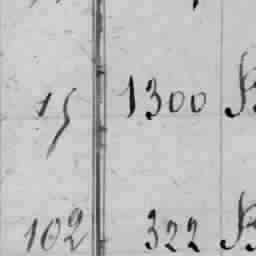 15 1300 B
102 322 B